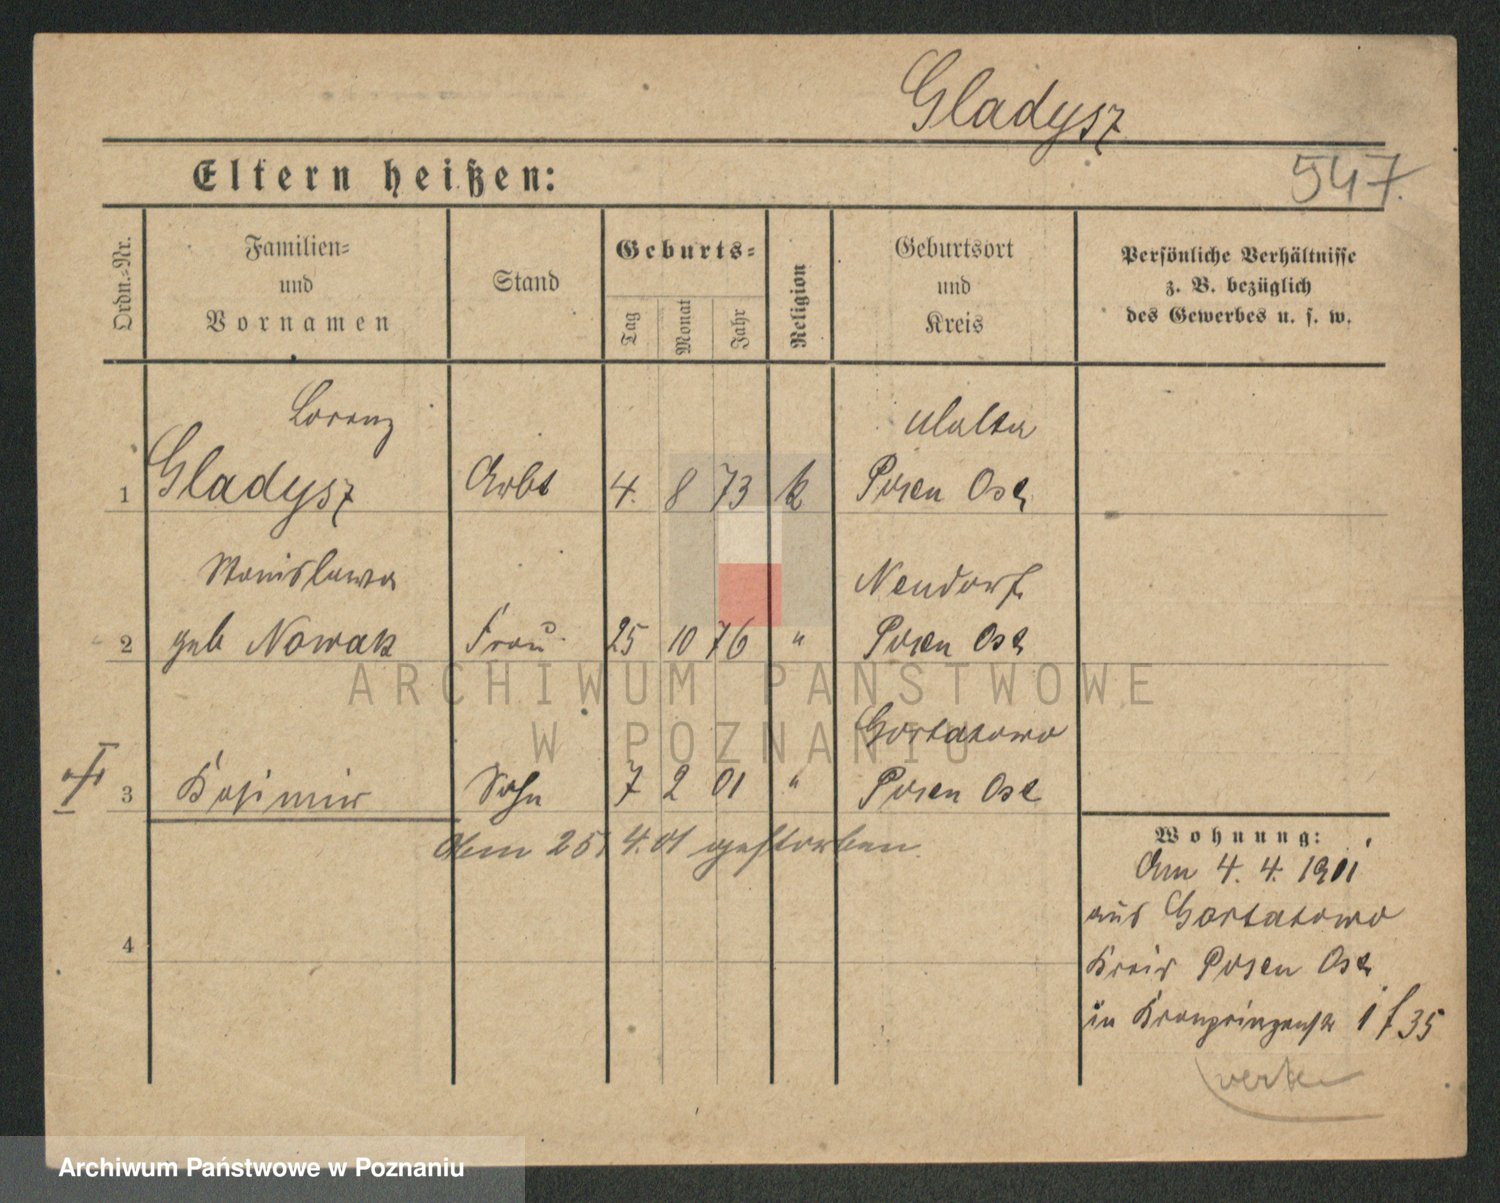 Gladysz
Eltern heißen:
547
Ordn.-Nr.
Familien-
und
Vornamen
Stand
Geburts-
Tag
Monat
Jahr
Religion
Geburtsort
und
Kreis
Persönliche Verhältnisse
z. B. bezüglich
des Gewerbes u. s. w.
Lorenz
1 Gladysz Arbt 4. 8 73 k Posen Ost
Stanislawa Neudorf
2 geb Nowak Frau 25 10 76 " Posen Ost
Gortatowo
3 Kasimir Sohn 7 2 01 " Posen Ost
Am 25. 4. 01 gestorben.
4
Wohnung:
Am 4. 4. 1901
aus Gortatowo
Kreis Posen Ost
in Kronprinzenstr
35
ARCHIWUM PAŃSTWOWE
W POZNANIU
Archiwum Państwowe w Poznaniu